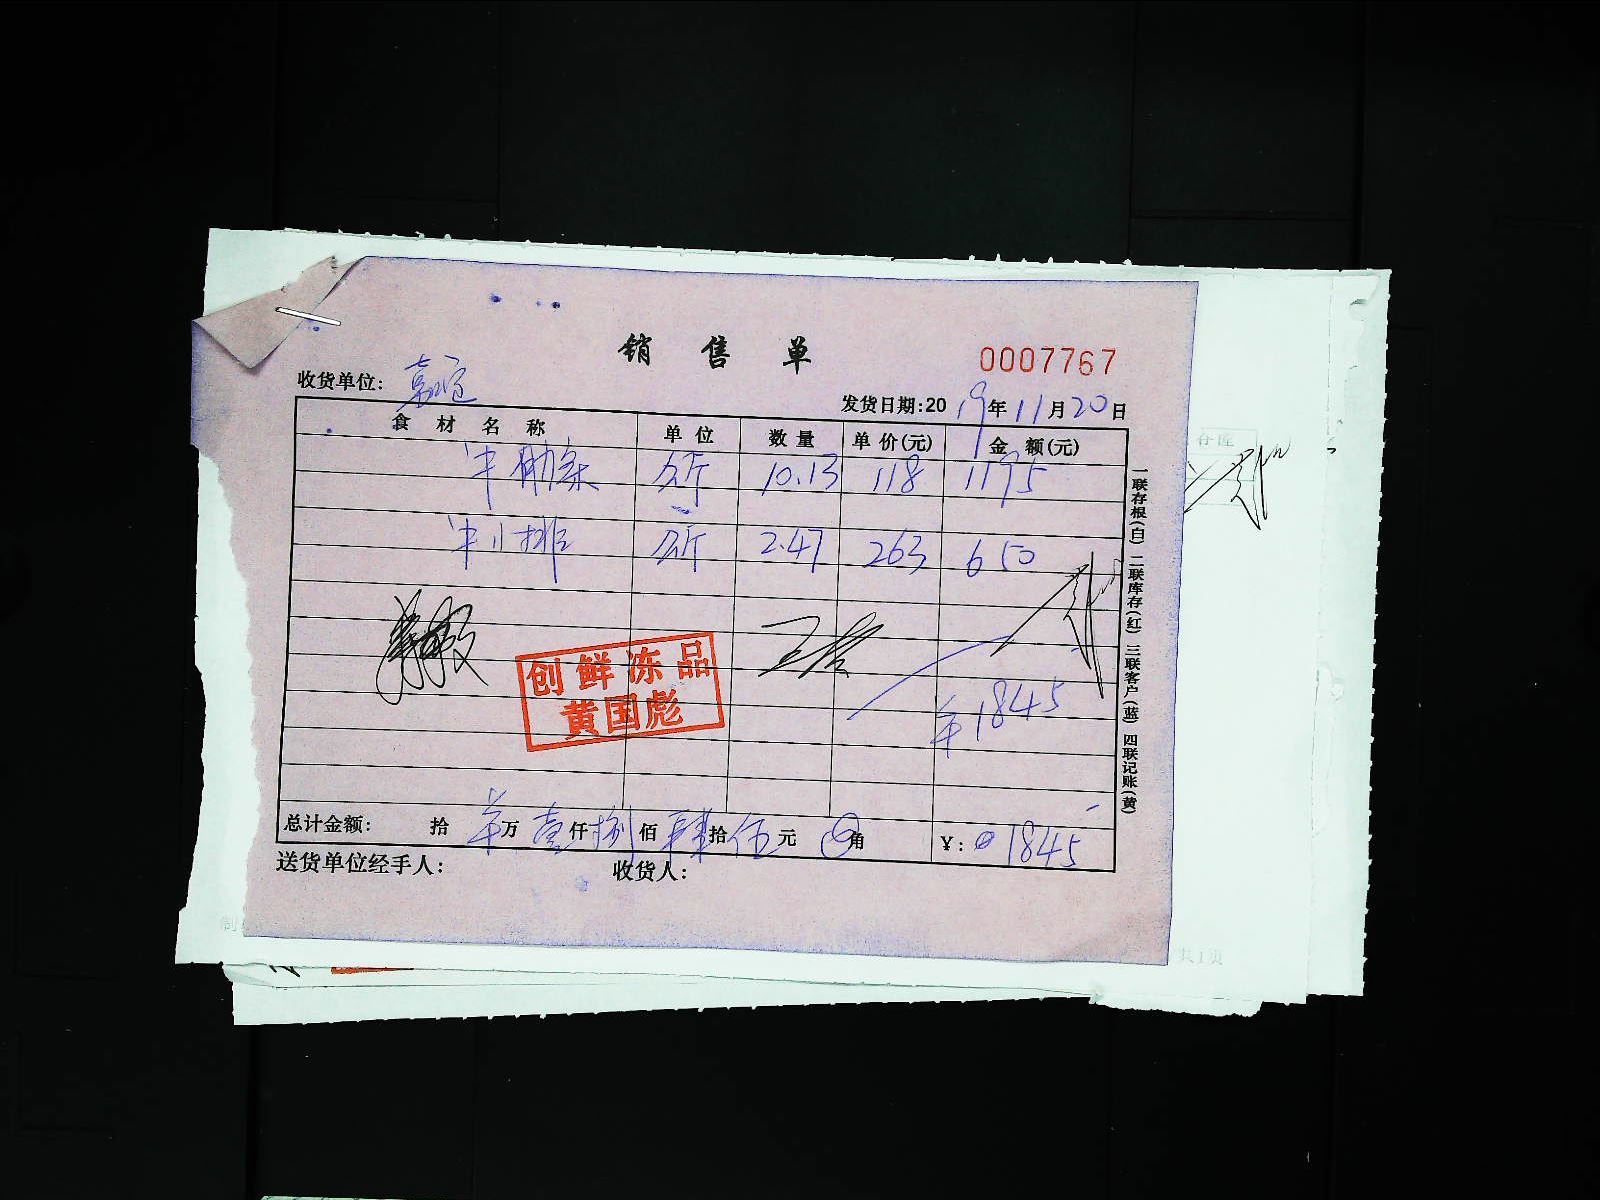 销售单
0007767
收货单位: 嘉谊
发货日期:2019年11月20日
食材名称 单位 数量 单价(元) 金额(元)
牛肋条 公斤 10.13 118 1195
牛小排 公斤 2.47 263 650
创鲜冻品
黄国彪
¥1845
总计金额: 拾 ¥万壹仟捌佰肆拾伍元0角 ¥: 1845
送货单位经手人: 收货人:
一联存根(白) 二联库存(红) 三联客户(蓝) 四联记账(黄)
存库
共1页
制